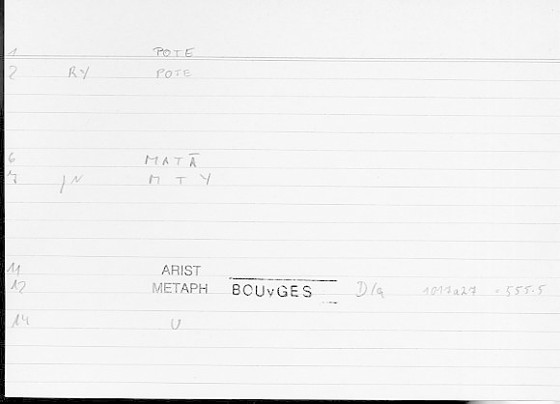 1 POTE
2 RY POTE
6 MATĀ
7 IN M T Y
11 ARIST
12 METAPH BOUvGES D/a 1017a27 - 555.5
14 U